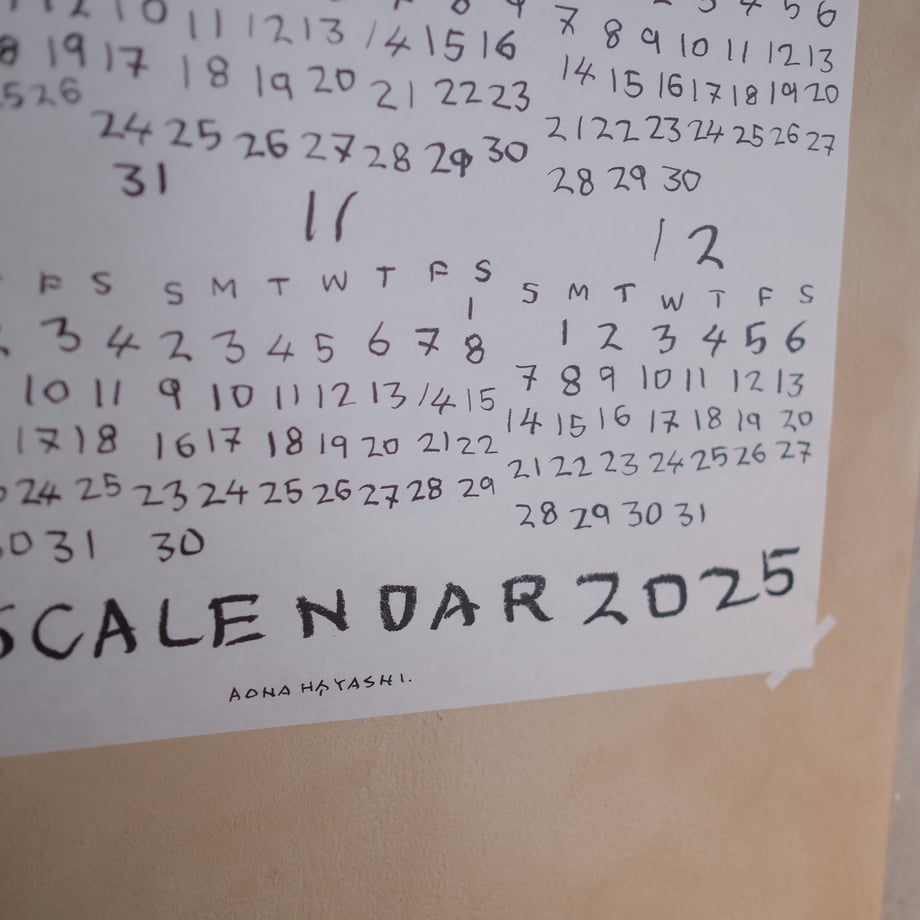 10 11 12 13 14 15 16
18 19 17 18 19 20 21 22 23
26 24 25 26 27 28 29 30
31
7 8 9 10 11 12 13
14 15 16 17 18 19 20
21 22 23 24 25 26 27
28 29 30
11
F S S M T W T F S
1
3 4 2 3 4 5 6 7 8
10 11 9 10 11 12 13 14 15
17 18 16 17 18 19 20 21 22
24 25 23 24 25 26 27 28 29
31 30
12
S M T W T F S
1 2 3 4 5 6
7 8 9 10 11 12 13
14 15 16 17 18 19 20
21 22 23 24 25 26 27
28 29 30 31
CALENDAR 2025
AONA HAYASHI.